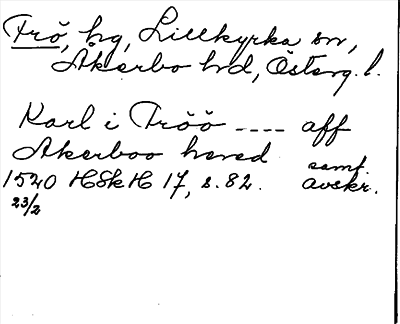 Frö, hg, Lillkyrka sn,
Åkerbo hd, Österg. l.
Karl i Fröö ---- aff
Akerboo hered
samt.
1520 HSkH 17, s. 82. avskr.
23/2